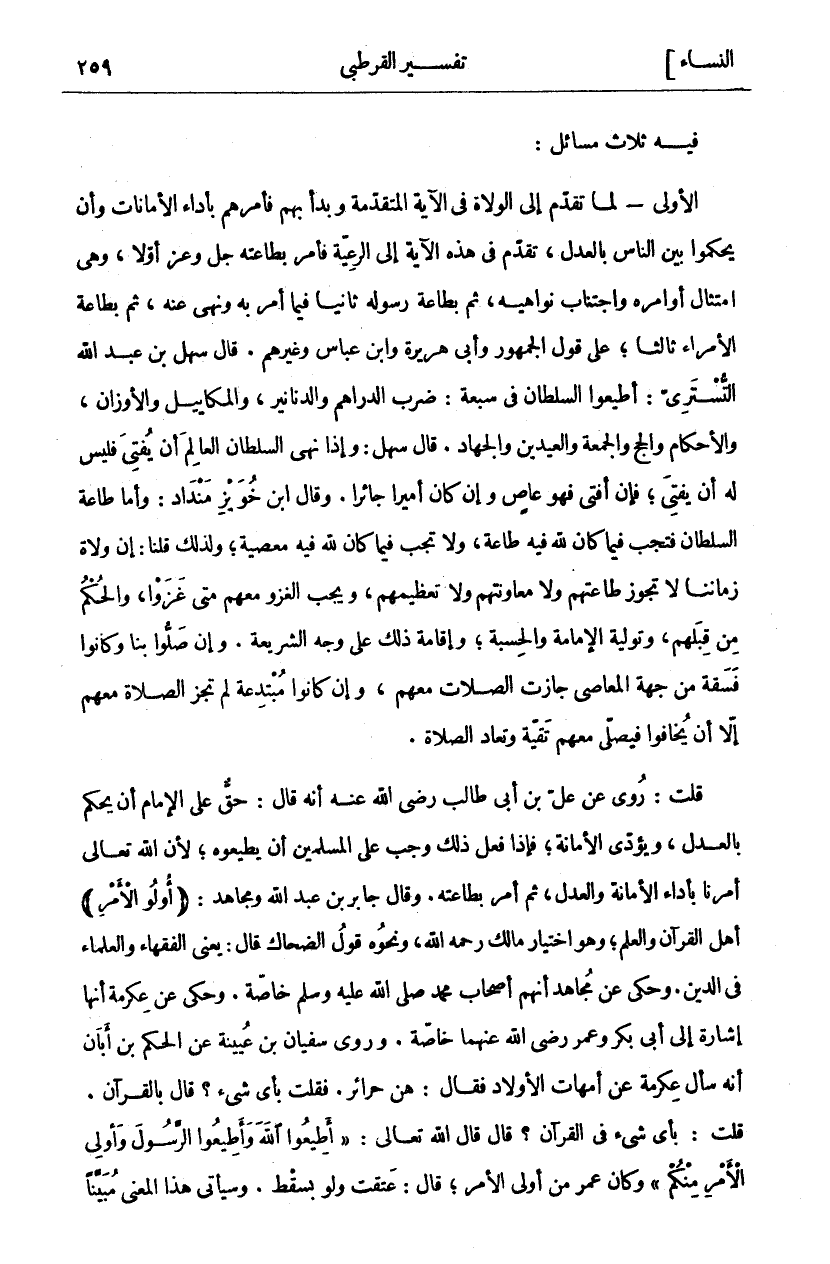 النساء] تفسير القرطبى ٢٥٩
فيه ثلاث مسائل :
الأولى – لما تقدّم إلى الولاة فى الآية المتقدمة وبدأ بهم فأمرهم بأداء الأمانات وأن
يحكموا بين الناس بالعدل ، تقدّم فى هذه الآية إلى الرعيّة فأمر بطاعته جل وعز أوّلا ، وهى
امتثال أوامره واجتناب نواهيه، ثم بطاعة رسوله ثانيا فيما أمر به ونهى عنه ، ثم بطاعة
الأمراء ثالثا ؛ على قول الجمهور وأبى هريرة وابن عباس وغيرهم . قال سهل بن عبد الله
التُّسْتَرِىّ : أطيعوا السلطان فى سبعة : ضرب الدراهم والدنانير ، والمكاييل والأوزان ،
والأحكام والحج والجمعة والعيدين والجهاد . قال سهل : وإذا نهى السلطان العالِمَ أن يُفتِىَ فليس
له أن يفتِىَ ؛ فإن أفتى فهو عاصٍ وإن كان أميرا جائرا . وقال ابن خُوَيْزِ مَنْدَاد : وأما طاعة
السلطان فتجب فيما كان لله فيه طاعة ، ولا تجب فيما كان لله فيه معصية ؛ ولذلك قلنا : إن ولاة
زماننا لا تجوز طاعتهم ولا معاونتهم ولا تعظيمهم ، ويجب الغزو معهم متى غَزَوْا، والحُكْمُ
مِن قِبَلهم، وتولية الإمامة والحِسبة ؛ وإقامة ذلك على وجه الشريعة . وإن صَلُّوا بنا وكانوا
فَسَقة من جهة المعاصى جازت الصلات معهم ، وإن كانوا مُبْتدِعة لم تجز الصلاة معهم
إلّا أن يُخافوا فيصلّى معهم تَقيّة وتعاد الصلاة .
قلت : رُوى عن علىّ بن أبى طالب رضى الله عنه أنه قال : حقٌّ على الإمام أن يحكم
بالعدل ، ويؤدّى الأمانة ؛ فإذا فعل ذلك وجب على المسلمين أن يطيعوه ؛ لأن الله تعالى
أمرنا بأداء الأمانة والعدل ، ثم أمر بطاعته . وقال جابر بن عبد الله ومجاهد : (( أُولُو الْأَمْرِ ))
أهل القرآن والعلم ؛ وهو اختيار مالك رحمه الله، ونحوُه قولُ الضحاك قال : يعنى الفقهاء والعلماء
فى الدين . وحكى عن مُجاهد أنهم أصحاب محمد صلى الله عليه وسلم خاصّة . وحكى عن عِكرمة أنها
إشارة إلى أبى بكر وعمر رضى الله عنهما خاصّة . وروى سفيان بن عُيينة عن الحكم بن أَبَان
أنه سأل عِكرمة عن أمهات الأولاد فقال : هن حرائر . فقلت بأى شىء ؟ قال بالقرآن .
قلت : بأى شىء فى القرآن ؟ قال قال الله تعالى : « أَطِيعُوا ٱللهَ وَأَطِيعُوا الرَّسُولَ وَأُولِى
الْأَمْرِ مِنْكُمْ » وكان عمر من أولى الأمر ؛ قال : عَتقت ولو بسقْط . وسيأتى هذا المعنى مُبَيَّناً